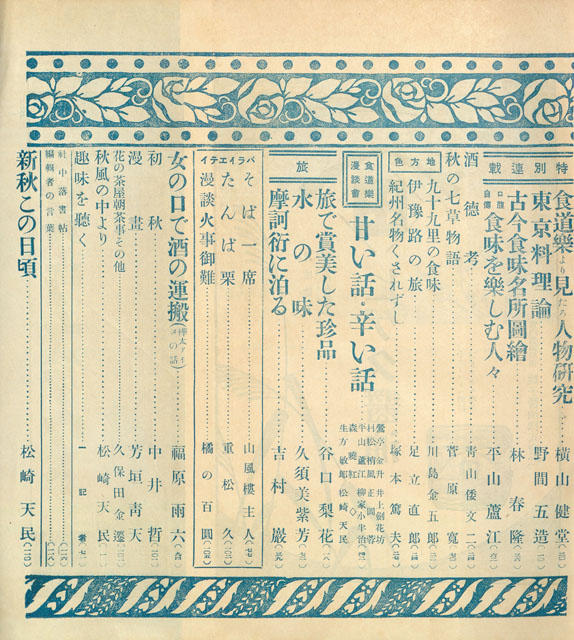 特別連載
食道樂より見たる人物研究 橫山健堂
東京料理論 野間五造
古今食味名所圖繪 林春隆
食味を樂しむ人々 平山蘆江
酒德考 青山倭文二
秋の七草物語 菅原寬
地方色
九十九里の食味 川島金五郎
伊豫路の旅 足立直郎
紀州名物くされずし 塚本篤夫
食道樂漫談會
甘い話・辛い話
鶯亭金升 井上劍花坊
村松梢風 正岡蓉
平山蘆江 柳家小半治
森曉紅
生方敏郎 松崎天民
旅
旅で賞美した珍品 谷口梨花
水の味 久須美紫芳
摩訶衍に泊る 吉村巖
バラエテイ
そば一席 山風樓主人
たんば栗 重松久
漫談火事御難 橘の百圓
女の口で酒の運搬 福原雨六
初秋 中井哲
漫畫 芳垣靑天
花の茶屋朝茶事その他 久保田金遷
秋風の中より 松崎天民
趣味を聽く 一記者
社中落書帖
編輯者の言葉
新秋この日頃 松崎天民